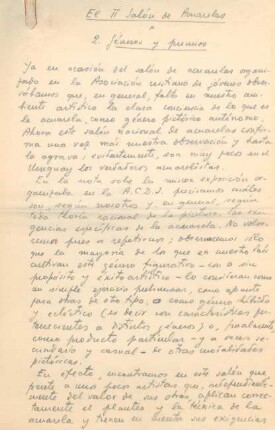 El II Salón de Acuarelas
2. Géneros y premios
Ya en ocasión del salón de acuarelas organi-
zado en la Asociación cristiana de jóvenes obser-
vábamos que, en general, falta en nuestro am-
biente artístico la clara conciencia de lo que es
la acuarela, como género pictórico autónomo.
Ahora este salón nacional de acuarelas confir-
ma una vez más nuestra observación y hasta
la agrava; evidentemente, son muy pocos en el
Uruguay los verdaderos acuarelistas.
En la nota sobre la mixta exposición or-
ganizada en la A.C.D.J. precisamos cuáles
son, según nosotros y, en general, según
toda teoría racional de la pintura, las exi-
gencias específicas de la acuarela. No volve-
remos pues a repetirnos; observaremos sólo
que la mayoría de los que en nuestro país
cultivan este género figurativo - con o sin
propósito y éxito artístico - lo consideran como
un simple ejercicio preliminar, como apunte
para obras de otro tipo, o como género híbrido
y ecléctico (es decir con características per-
tenecientes a distintos géneros) o, finalmente,
como producto particular - y a veces se-
cundario y casual - de otras modalidades
pictóricas.
En efecto, encontramos en este salón que
frente a unos pocos artistas que, independientemente
del valor de sus obras, aplican correc-
tamente el planteo y la técnica de la
acuarela y tienen en cuenta sus exigencias